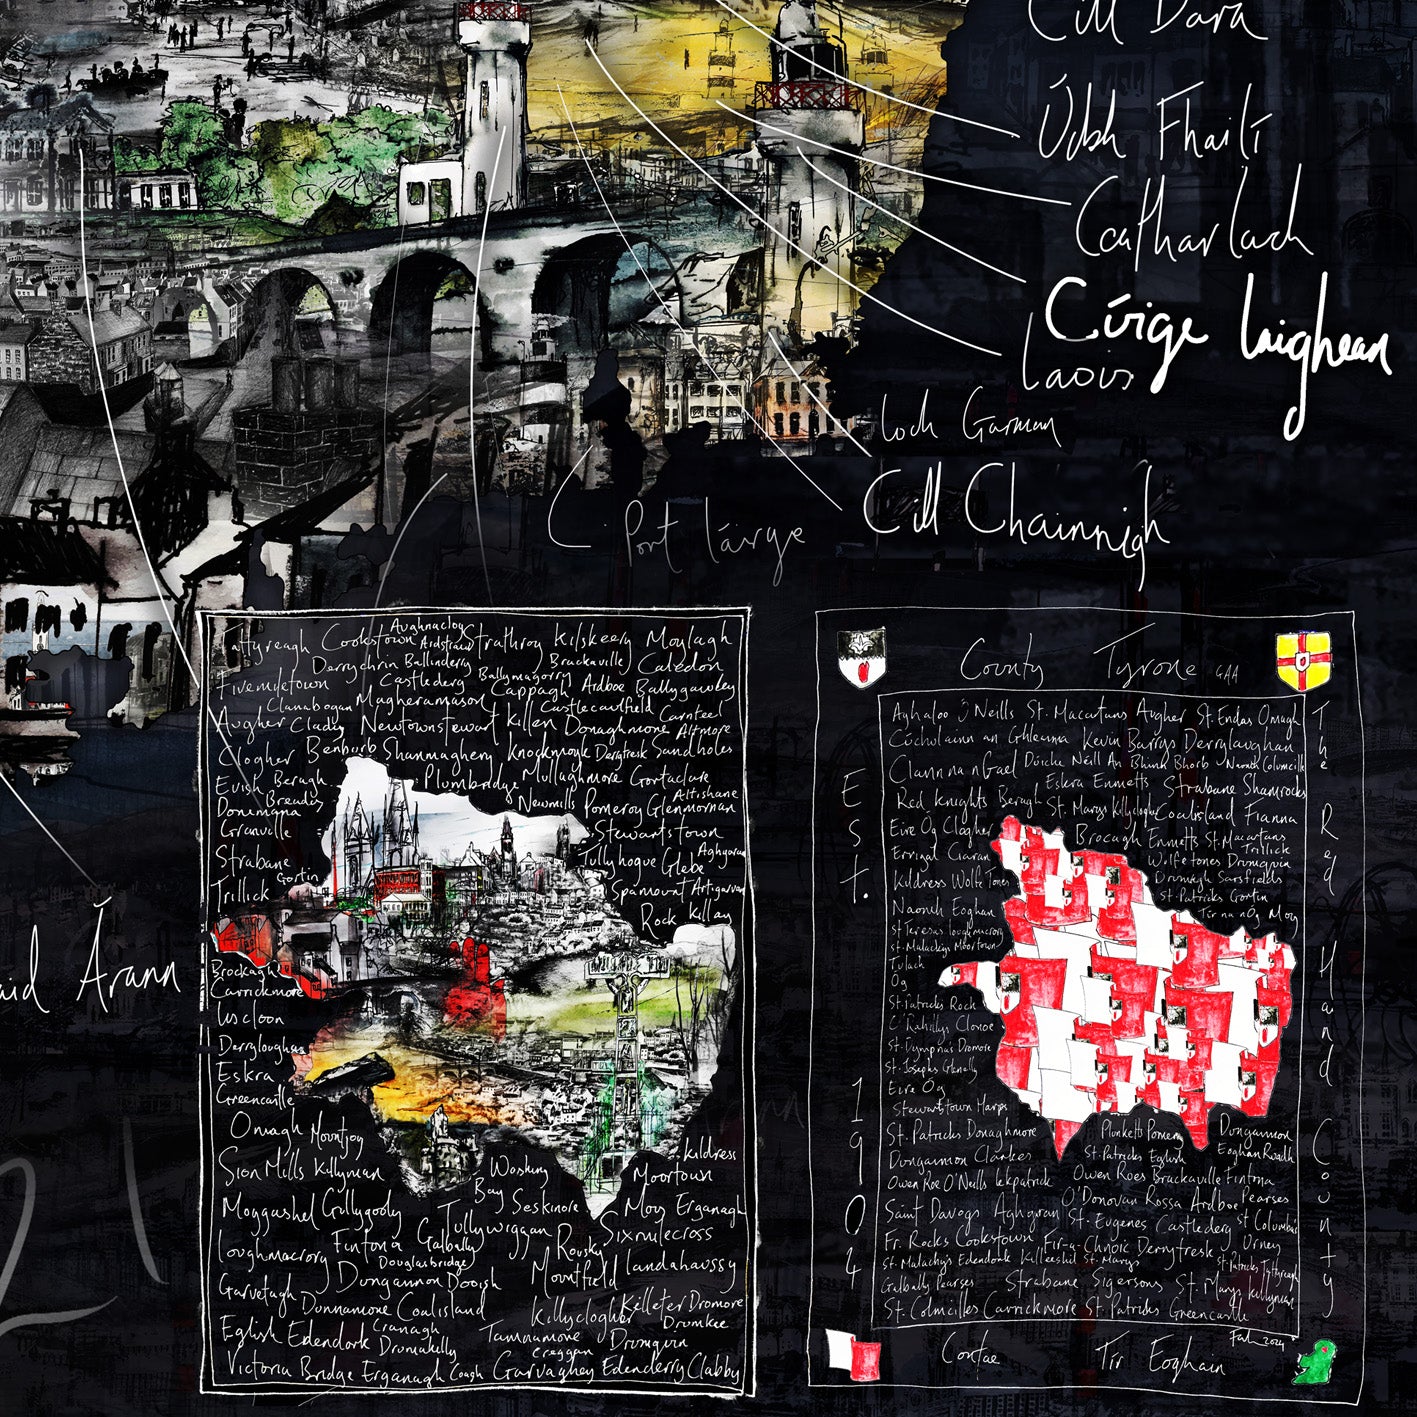 Cill Dara
Uíbh Fhailí
Ceatharlach
Cúige Laighean
Laois
Loch Garman
Cill Chainnigh
Port Láirge
Árann
21
Aughnacloy
Fattyreagh Cookstown Ardstraw Strathroy Kilskeery Moylagh
Derrychrin Ballinderry Brackaville Caledon
Fivemiletown Castlederg Ballymagorry Cappagh Ardboe Ballygawley
Clanabogan Magheramason Castlecaulfield Carnteel
Augher Clady Newtownstewart Killen Donaghmore Altmore
Clogher Benburb Shanmaghery Knockmoyle Derrytresk Sandholes
Evish Beragh Plumbridge Mullaghmore Gortaclare
Donemana Breadys Newmills Pomeroy Glenmornan Altishane
Granville Stewartstown
Strabane Tullyhogue Glebe Aghyaran
Gortin
Trillick Spamount Artigarvan
Rock Killay
Brockagh
Carrickmore
Loscloon
Derryloughan
Eskra
Greencastle
Omagh Mountjoy
Sion Mills Killyman Washing Bay Kildress
Moortown
Moygashel Gullygooly Seskinore Moy Erganagh
Tullywiggan Sixmilecross
Loughmacrory Fintona Galbally Rousky
Douglasbridge
Garvetagh Dungannon Dooish Mountfield Landahaussy
Dunnamore Coalisland Killyclogher Kelleter Dromore
Eglish Edendork Cranagh Drumakelly Tamnamore Creggan Dromquin Drumkee
Victoria Bridge Erganagh Coagh Garvaghey Edenderry Clabby
County Tyrone GAA
The Red Hand County
Est. 1904
Aghaloo O Neills St. Macartans Augher St. Endas Omagh
Cúchulainn an Ghleanna Kevin Barrys Derrylaughan
Clann na nGael Dúiche Néill An Bhinn Bhorb Naomh Colmcille
Eskra Emmetts Strabane Shamrocks
Red Knights Beragh St. Marys Killyclogher Coalisland Fianna
Eire Og Clogher Brocagh Emmetts St. Macartans
Trillick
Errigal Ciaran Wolfe tones Dromquin
Kildress Wolfe Tones Dromragh Sarsfields
St Patricks Gortin
Naomh Eoghan Tír na nOg Moy
St Teresas Loughmacrory
St. Malachys Moortown
Tulach
Og
St. Patricks Rock
O'Rahillys Clonoe
St. Dympnas Dromore
St. Josephs Glenelly
Eire Og
Stewartstown Harps
St. Patricks Donaghmore Plunketts Pomeroy Dungannon
Dungannon Clarkes St. Patricks Eglish Eoghan Ruadh
Owen Roe O'Neills Leckpatrick Owen Roes Brackaville Fintona
Saint Davogs Aghyaran O'Donovan Rossa Ardboe Pearses
St. Eugenes Castlederg St Columbas
Fr. Rocks Cookstown Fir-a-Chnoic Derrytresk Urney
St. Malachys Edendork Killeeshil St. Marys St. Patricks Fattyreagh
Galbally Pearses Strabane Sigersons St. Marys Killyman
St. Colmcilles Carrickmore St. Patricks Greencastle
2024
Contae Tír Eoghain